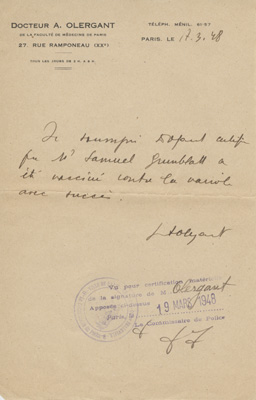 DOCTEUR A. OLERGANT
DE LA FACULTÉ DE MÉDECINE DE PARIS
27, RUE RAMPONEAU (XXe)
TÉLÉPH. MÉNIL. 61-57
PARIS, LE 18.3.48
Je soussigné Dr Olergant certifie
que Mr Samuel a
été vacciné contre la variole
avec succès.
Olergant
Vu pour certification matérielle
de la signature de M. Olergant
Apposée ci-dessus
Paris, le 19 MARS 1948
Le Commissaire de Police